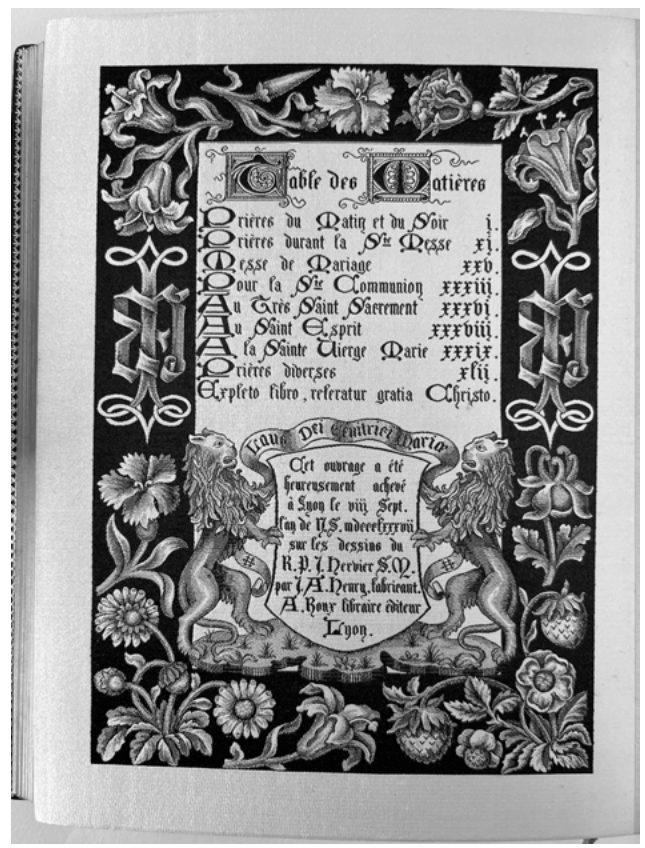 Table des Matières
Prières du Matin et du Soir j.
Prières durant la Ste Messe xj.
Messe de Mariage xxv.
Pour la Ste Communion xxxiij.
Au Très Saint Sacrement xxxvj.
Au Saint Esprit xxxviij.
A la Sainte Vierge Marie xxxix.
Prières diverses xlij.
Expleto libro, referatur gratia Christo.
Laus Dei Genitrici Mariæ
Cet ouvrage a été
heureusement achevé
à Lyon le viij Sept.
l'an de N.S. mdccclxxxvij
sur les dessins du
R. P. J. Hervier S. M.
par J. A. Henry, fabricant.
A. Roux libraire éditeur
Lyon.